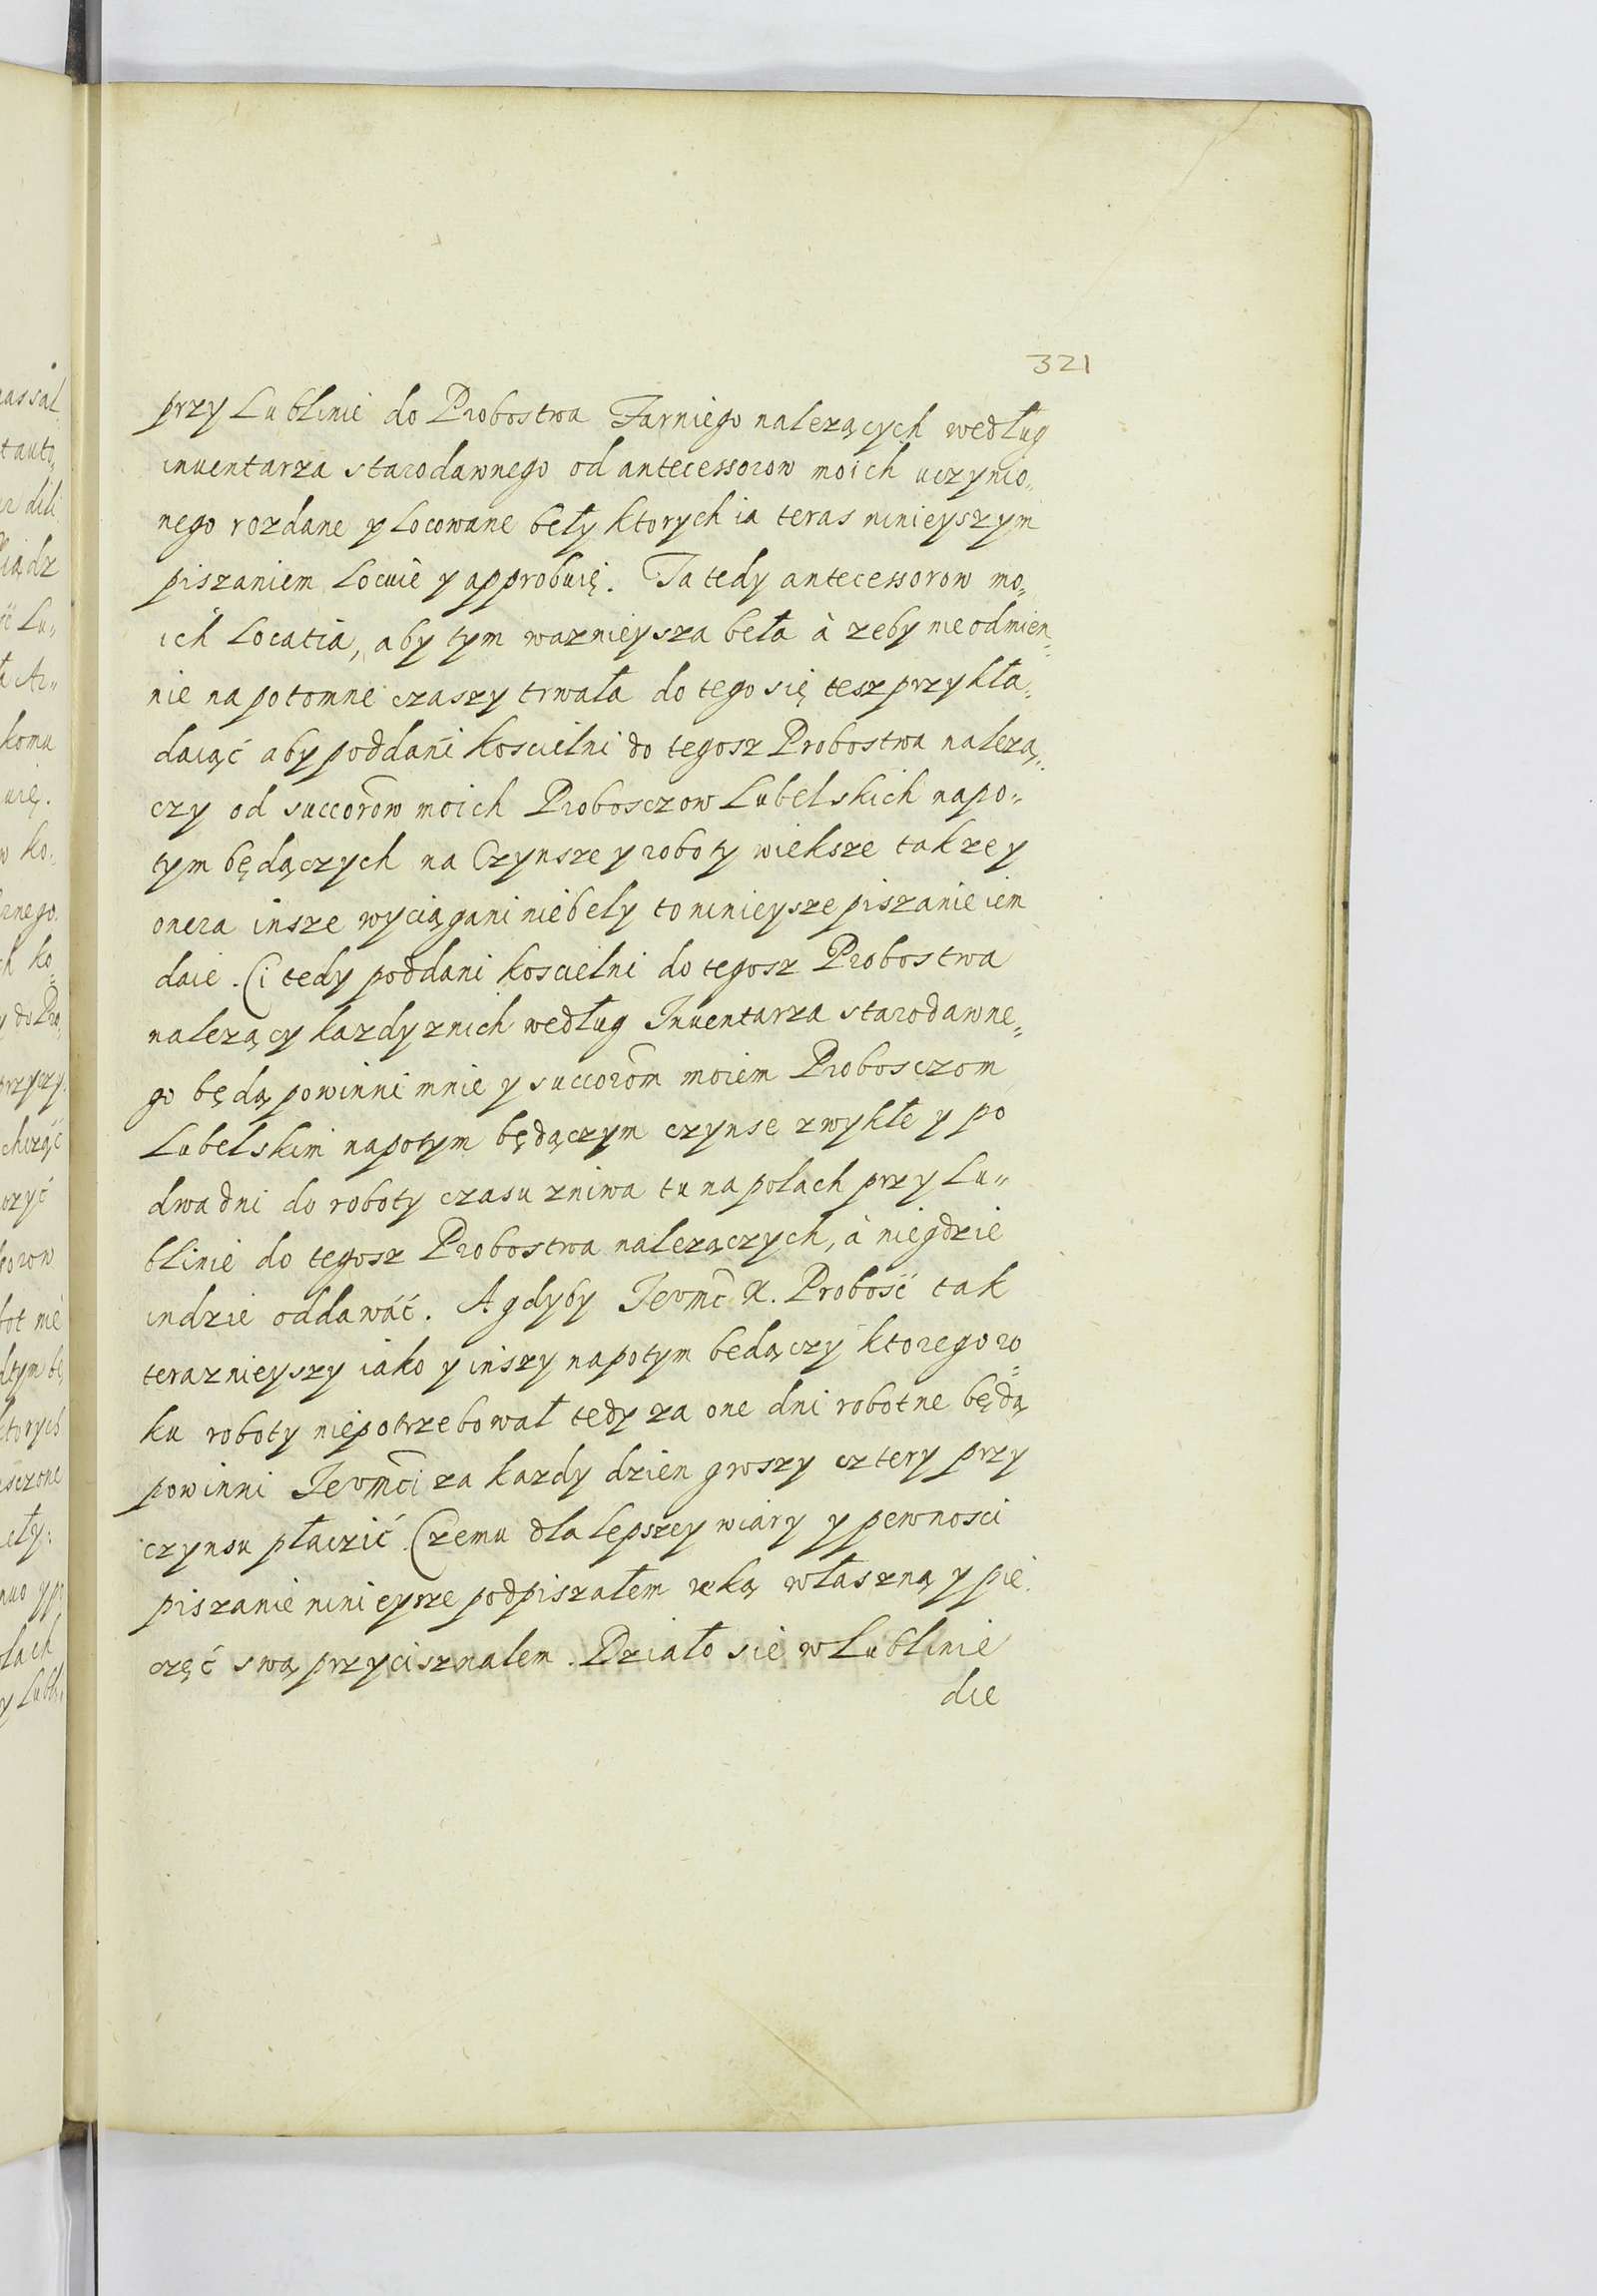 321
przy Lublinie do Probostwa Farniego nalezących według
inuentarza starodawnego od antecessorow moich uczynio„
nego rozdane y locowane beły ktorych ia teras ninieyszym
piszaniem locuię y approbuię. Ta tedy antecessorow mo„
ich Locatia, aby tym waznieysza beła à zeby nieodmien„
nie napotomne czaszy trwała do tego się tesz przykła„
daiąć aby poddani koscielni do tegosz Probostwa nalezą„
czy od succorōw moich Probosczow Lubelskich napo„
tym będączych na Czynsze y roboty wieksze takze y
onera insze wyciągani niebely to ninieysze piszanie iem
daie. Ci tedy poddani koscielni do tegosz Probostwa
nalezący kazdy znich według Inuentarza starodawne„
go będą powinni mnie y succorōm moiem Probosczom
Lubelskim napotym będączym czynse zwykłe y po
dwa dni do roboty czasu zniwa tu na polach przy Lu„
blinie do tegosz Probostwa nalezączych, à niegdzie
indzie oddawáć. A gdyby Jeomć X. Probość tak
teraznieyszy iako y inszy napotym będączy ktorego ro„
ku roboty niepotrzebował tedy za one dni robotne będą
powinni Jeomći za kazdy dzien groszy cztery przy
czynsu płaczić. Czemu dla lepszey wiary y pewnosci
piszanie ninieysze podpiszałem ręką właszną y pie„
częć swą przycisznałem. Działo sie w Lublinie
die